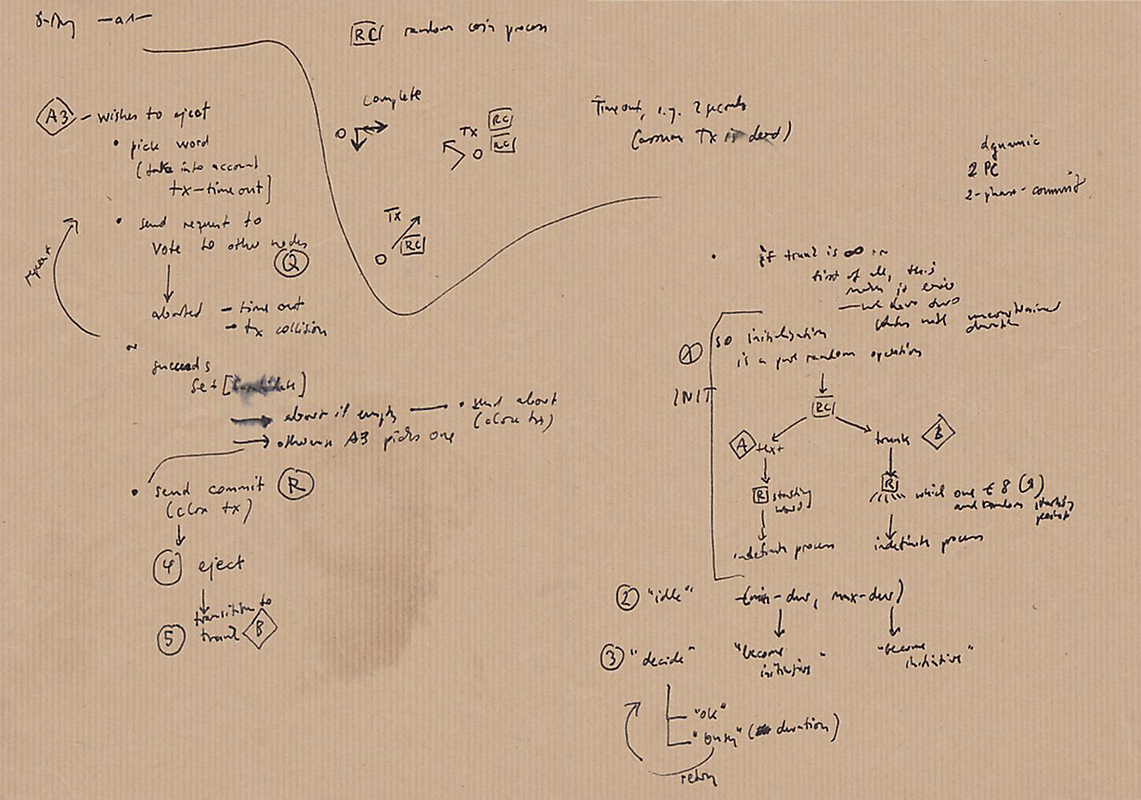 RC random coin process
A3 - wishes to eject
• pick word
(take into account
tx-timeout]
• send request to
vote to other nodes
Q
repeat
aborted - time out
- tx collision
or
succeeds
set [
→ abort if empty — • send abort
(close tx)
→ otherwise A3 picks one
• send commit R
(close tx)
4 eject
transition to
5 trunk B
complete
O
Tx RC
O RC
Tx
O RC
Timeout, e.g. 2 seconds
(assume Tx is dead)
dynamic
2 PC
2-phase-commit
• if trunk is ∞
first of all, this
- we have two
states with unconstrained
duration
1 so initialisation
is a pure random operation
INIT
RC
A text trunk B
R starting
word
R which one of 8 (9)
and random starting
point
indefinite process indefinite process
2 "idle" (min-dur, max-dur)
3 "decide" "become
initiative" "become
initiative"
"ok"
"busy" (duration)
retry